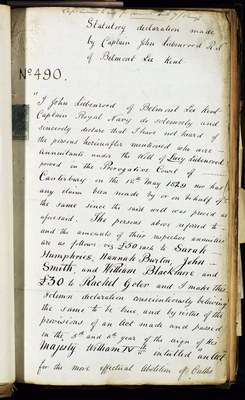 Statutory declaration made
by Captain John Lidenwood R.N
of Belmont Lee Kent
No 490.
"I John Lidenwood of Belmont Lee Kent
Captain Royal Navy do solemnly and
sincerely declare that I have not heard of
the persons hereinafter mentioned who were
annuitants under the Will of Lucy Lidenwood
proved in the Prerogative Court of
Canterbury on the 12th May 1829 nor has
any claim been made by or on behalf of
the same since the said will was proved as
aforesaid. The persons above referred to
and the amounts of their respective annuities
are as follows viz £50 each to Sarah
Humphries, Hannah Burlin, John
Smith, and William Blackmore and
£30 to Rachel Goter and I make this
solemn declaration conscientiously believing
the same to be true, and by virtue of the
provisions of an Act made and passed
in the 5th and 6th year of the reign of His
Majesty William IVth intituled an Act
for the more effectual Abolition of Oaths